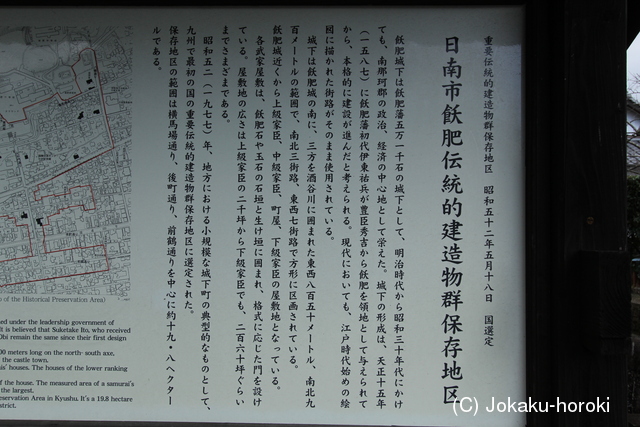 重要伝統的建造物群保存地区　昭和五十二年五月十八日　国選定
日南市飫肥伝統的建造物群保存地区
飫肥城下は飫肥藩五万一千石の城下として、明治時代から昭和三十年代にかけ
ても、南那珂郡の政治、経済の中心地として栄えた。城下の形成は、天正十五年
（一五八七）に飫肥藩初代伊東祐兵が豊臣秀吉から飫肥を領地として与えられて
から、本格的に建設が進んだと考えられる。現代においても、江戸時代始めの絵
図に描かれた街路がそのまま使用されている。
城下は飫肥城の南に、三方を酒谷川に囲まれた東西八百五十メートル、南北九
百メートルの範囲で、南北三街路、東西七街路で方形に区画されている。
飫肥城近くから上級家臣、中級家臣、町屋、下級家臣の屋敷地となっている。
各武家屋敷は、飫肥石や玉石の石垣と生け垣に囲まれ、格式に応じた門を設け
ている。屋敷地の広さは上級家臣の二千坪から下級家臣でも、二百六十坪ぐらい
までさまざまである。
昭和五二（一九七七）年、地方における小規模な城下町の典型的なものとして、
九州で最初の国の重要伝統的建造物群保存地区に選定された。
保存地区の範囲は横馬場通り、後町通り、前鶴通りを中心に約十九・八ヘクター
ルである。
of the Historical Preservation Area)
ed under the leadership government of
It is believed that Suketake Ito, who received
Obi remain the same since their first design
00 meters long on the north- south axe,
the castle town.
is' houses. The houses of the lower ranking
of the house. The measured area of a samurai's
the largest.
servation Area in Kyushu. It's a 19.8 hectare
trict.
(C) Jokaku-horoki